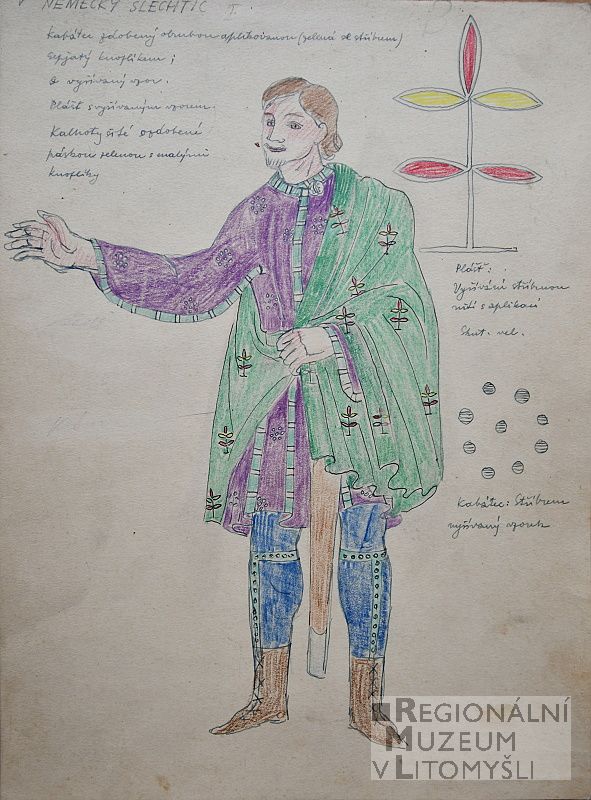 NĚMECKÝ ŠLECHTIC I.
Kabátec zdobený obrubou aplikovanou (zelená se stříbrem)
Sepjatý knoflíkem;
vyšívaný vzor.
Plášť s vyšívaným vzorem.
Kalhoty šité ozdobené
páskou zelenou s malými
knoflíky
Plášť:
Vyšívání stříbrnou
nití s aplikací
Skut. vel.
Kabátec: Stříbrem
vyšívaný vzorek
REGIONÁLNÍ
MUZEUM
V LITOMYŠLI